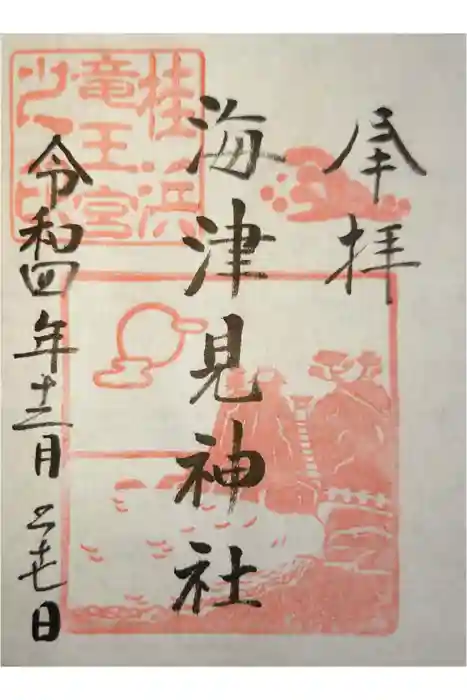 奉拝
海津見神社
令和四年十二月二十七日
桂浜
竜王宮
之印